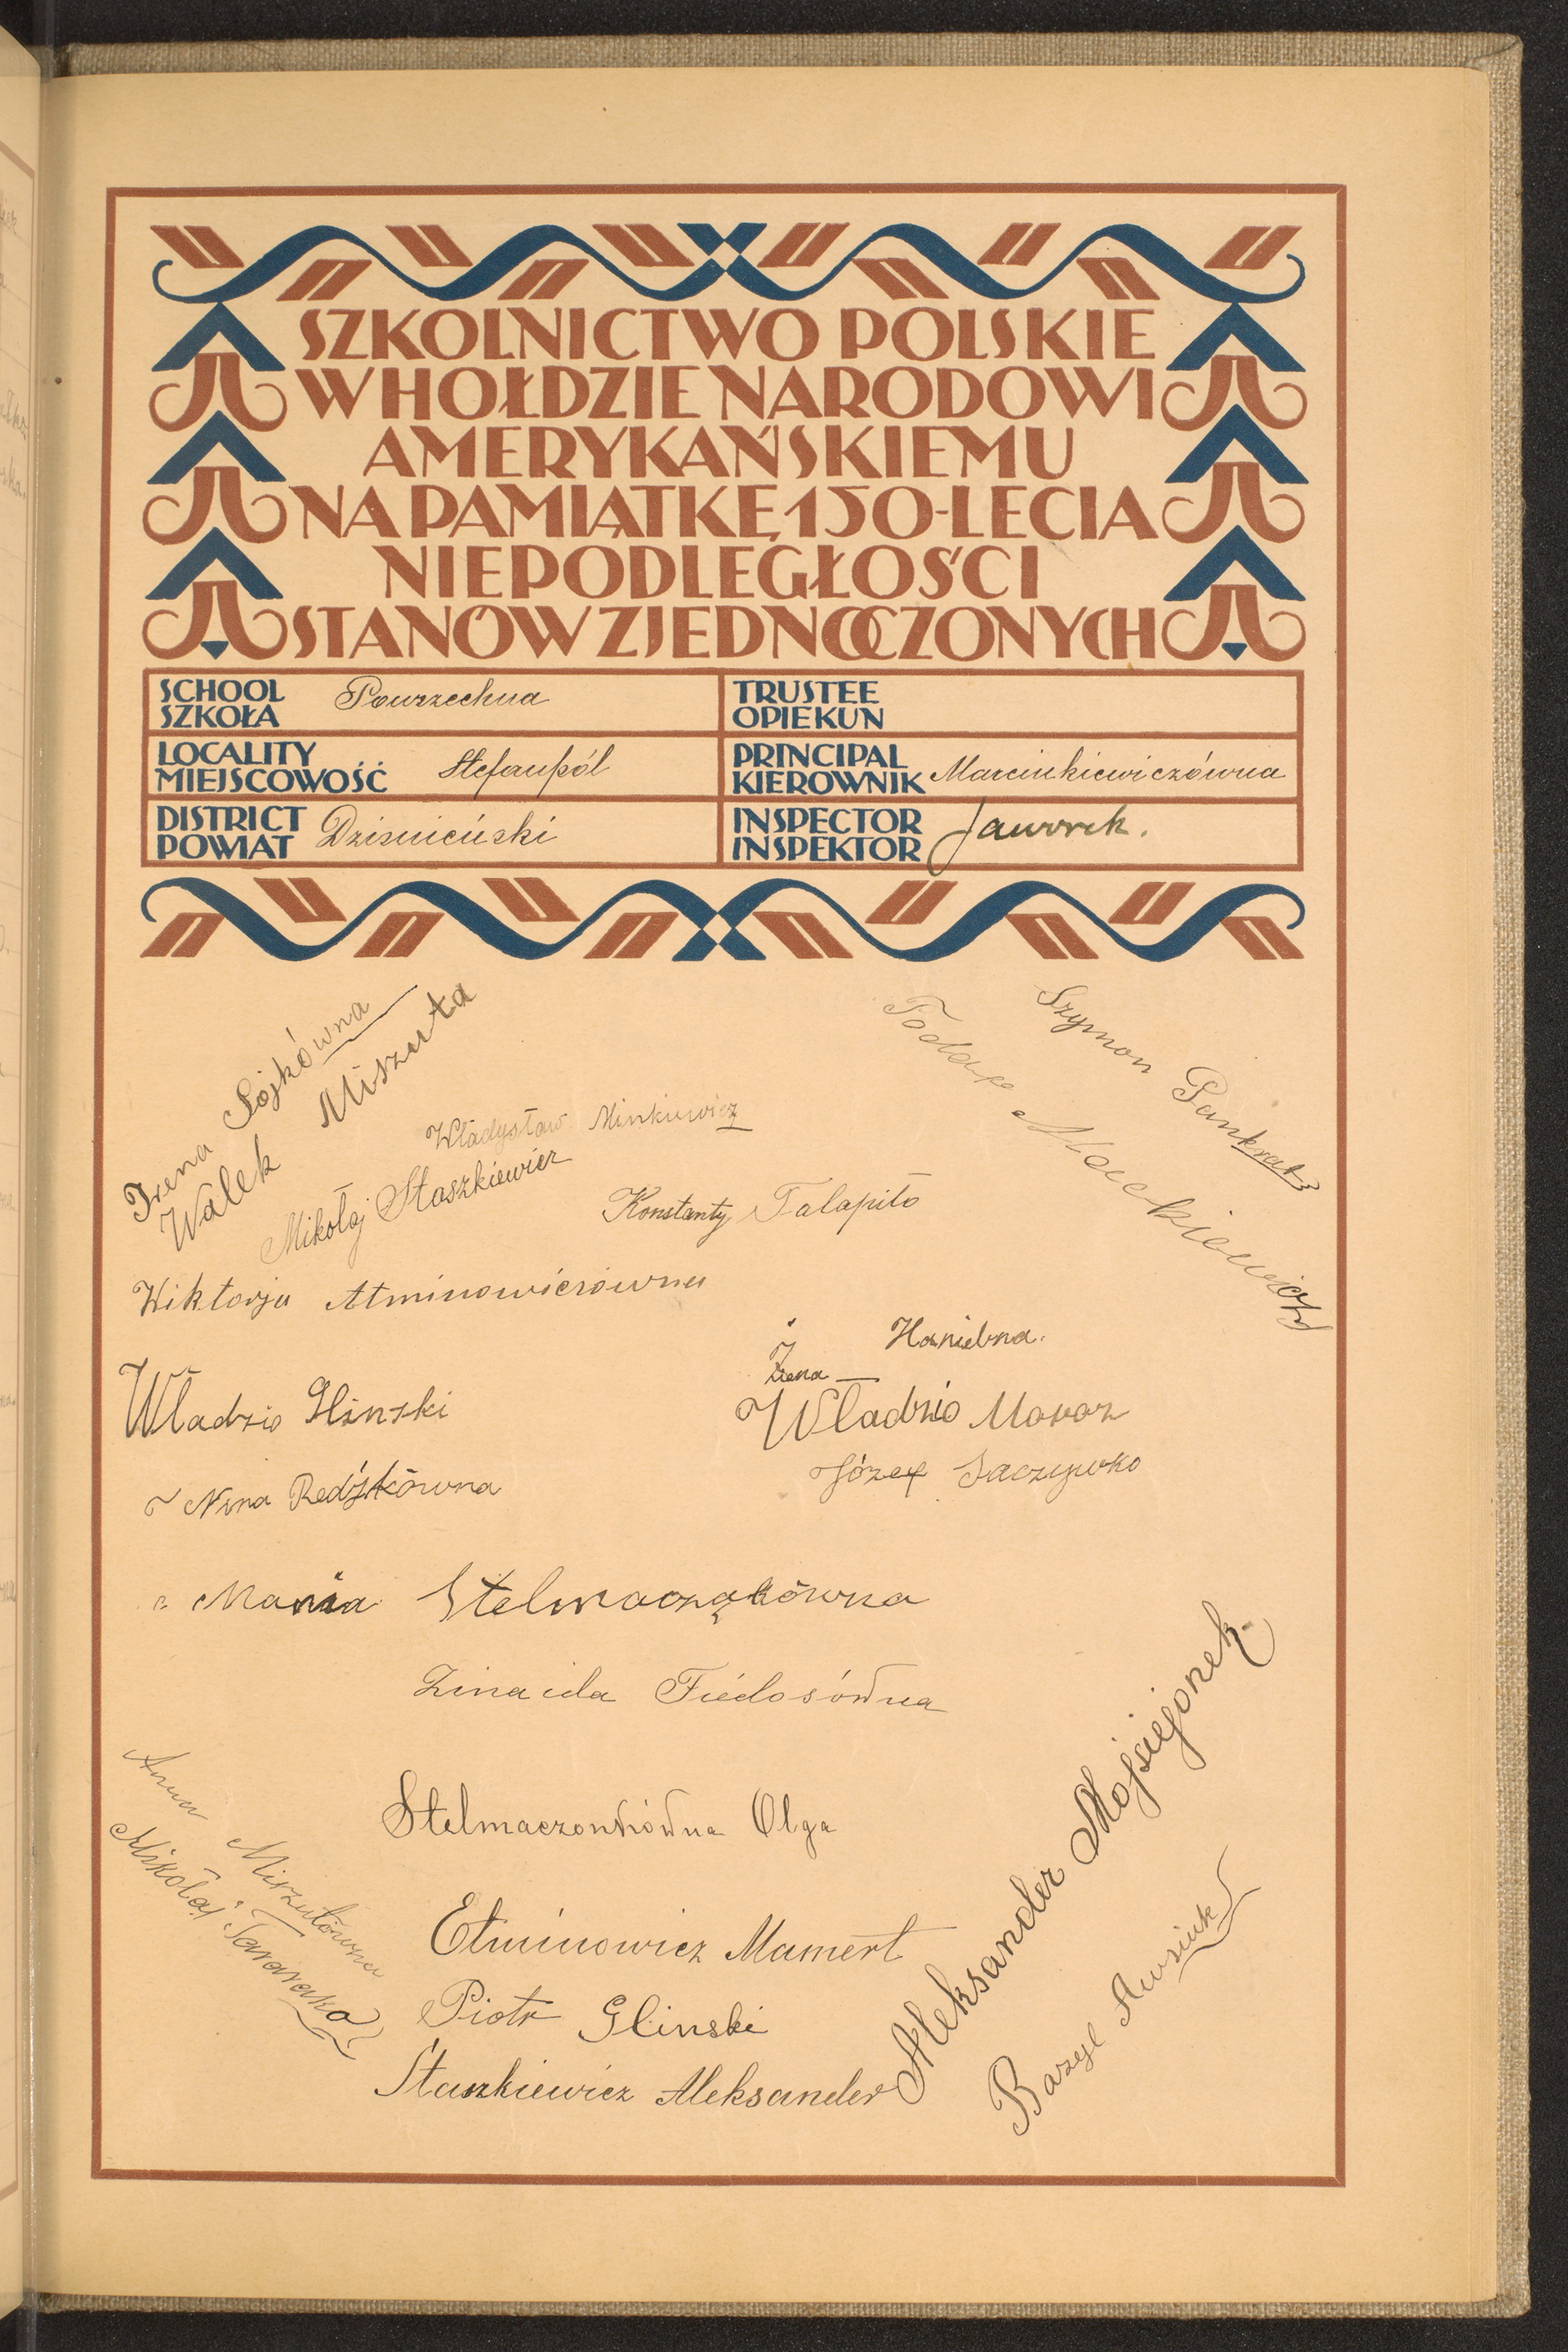 SZKOLNICTWO POLSKIE
W HOŁDZIE NARODOWI
AMERYKAŃSKIEMU
NA PAMIĄTKĘ 150-LECIA
NIEPODLEGŁOŚCI
STANÓW ZJEDNOCZONYCH
SCHOOL
SZKOŁA Powszechna
TRUSTEE
OPIEKUN
LOCALITY
MIEJSCOWOŚĆ Stefanpól
PRINCIPAL
KIEROWNIK Marcinkiewiczówna
DISTRICT
POWIAT Dzisnieński
INSPECTOR
INSPEKTOR Jaworek.
Irena Sojkówna
Walek Miszuta
Szymon Pankratz
Mackiewicz
Władysław Minkiewicz
Mikołaj Staszkiewicz
Konstanty Talapiło
Wiktorja Atminowiczówna
Haniebna.
Żena
Władzio Glinski
Władzio Moroz
Józef
Nina Redźkówna
Mania Stelmacząkówna
Zinaida Fiedosówna
Stelmaczonkówna Olga
Anna Miszutówna
Mikołaj Tararaka
Etminowicz Mamert
Piotr Glinski
Staszkiewicz Aleksander
Aleksander Mojsiejonek
Bazyl Awsiuk